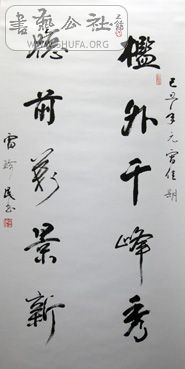 書藝公社
WWW.GHUFA.ORG
己丑年元宵佳期
檻外千峰秀
窓前万景新
雷珍民書